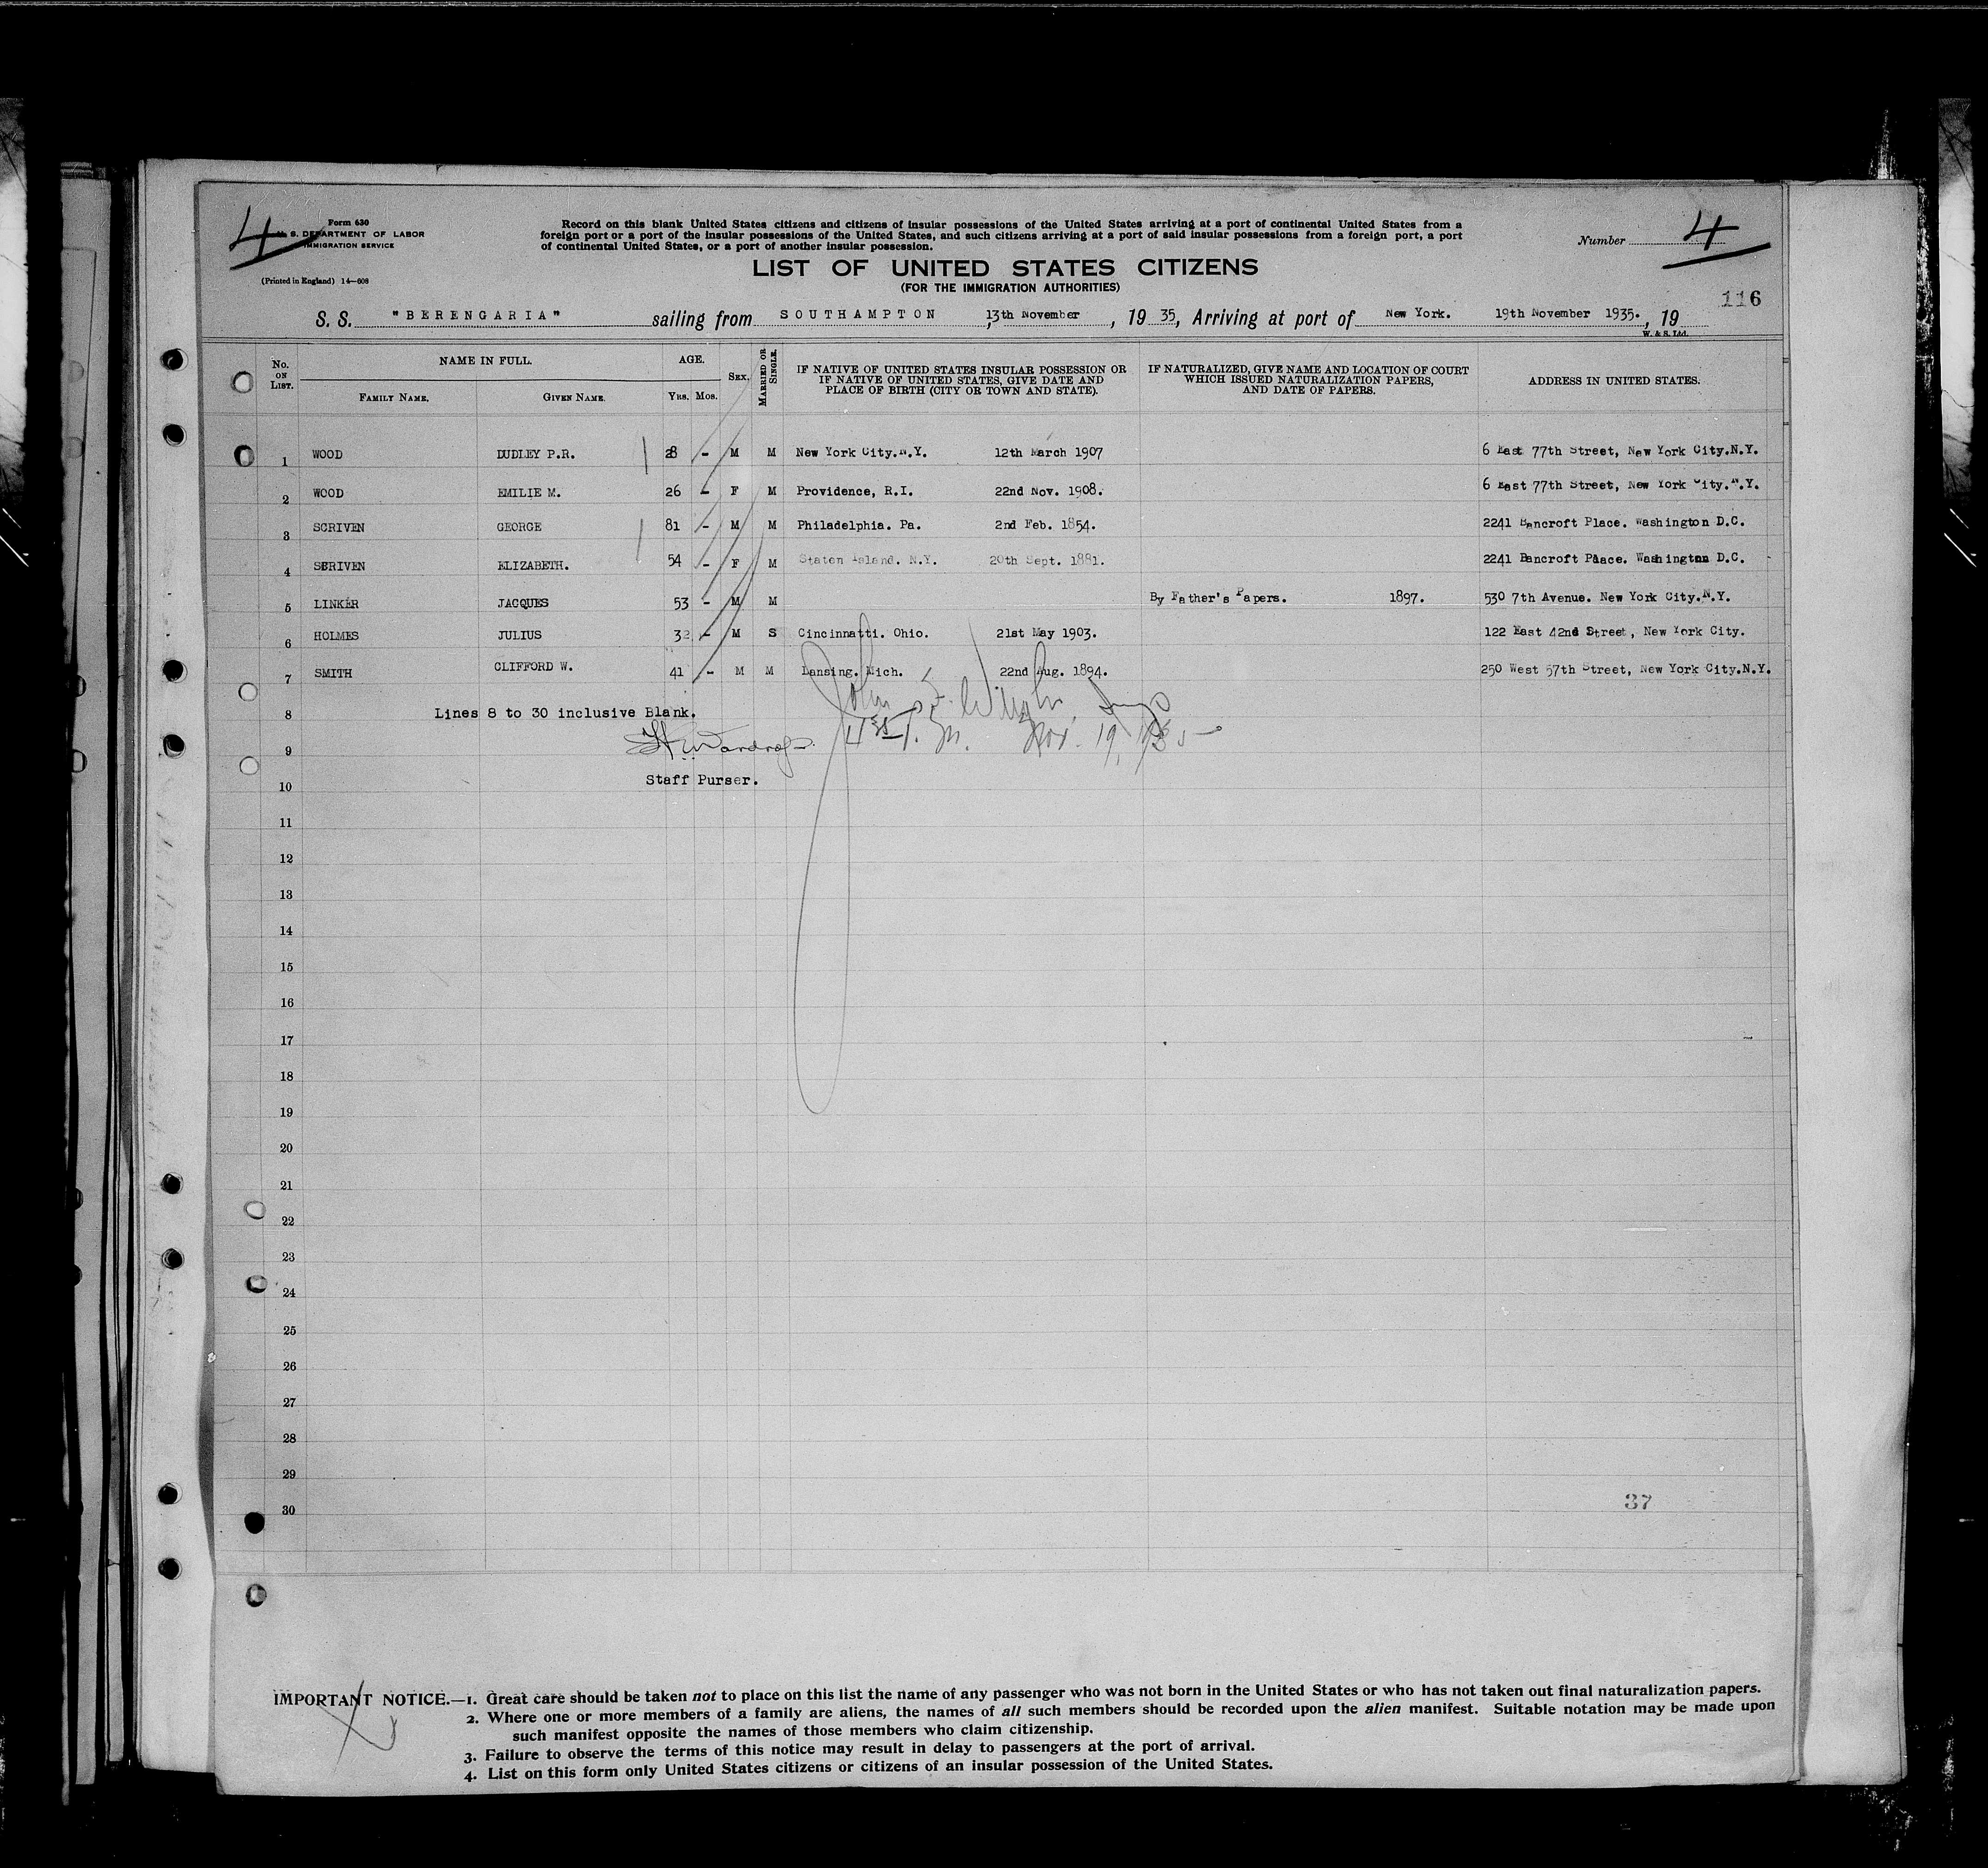 4
Form 630
U. S. DEPARTMENT OF LABOR
IMMIGRATION SERVICE
(Printed in England) 14—608
Record on this blank United States citizens and citizens of insular possessions of the United States arriving at a port of continental United States from a
foreign port or a port of the insular possessions of the United States, and such citizens arriving at a port of said insular possessions from a foreign port, a port
of continental United States, or a port of another insular possession.
Number 4
LIST OF UNITED STATES CITIZENS
(FOR THE IMMIGRATION AUTHORITIES)
116
S. S. "BERENGARIA" sailing from SOUTHAMPTON 13th November, 19 35, Arriving at port of New York. 19th November 1935., 19
W. & S. Ltd.
No. ON LIST. NAME IN FULL. FAMILY NAME. GIVEN NAME. AGE. YRS. MOS. SEX. MARRIED OR SINGLE. IF NATIVE OF UNITED STATES INSULAR POSSESSION OR IF NATIVE OF UNITED STATES, GIVE DATE AND PLACE OF BIRTH (CITY OR TOWN AND STATE). IF NATURALIZED, GIVE NAME AND LOCATION OF COURT WHICH ISSUED NATURALIZATION PAPERS, AND DATE OF PAPERS. ADDRESS IN UNITED STATES.
1 WOOD DUDLEY P.R. 28 - M M New York City.N.Y. 12th March 1907 6 East 77th Street, New York City.N.Y.
2 WOOD EMILIE M. 26 - F M Providence, R.I. 22nd Nov. 1908. 6 East 77th Street, New York City.N.Y.
3 SCRIVEN GEORGE 81 - M M Philadelphia. Pa. 2nd Feb. 1854. 2241 Bancroft Place. Washington D.C.
4 SCRIVEN ELIZABETH. 54 - F M Staten Island. N.Y. 20th Sept. 1881. 2241 Bancroft Place. Washington D.C.
5 LINKER JACQUES 53 - M M By Father's Papers. 1897. 530 7th Avenue. New York City.N.Y.
6 HOLMES JULIUS 32 - M S Cincinnatti. Ohio. 21st May 1903. 122 East 42nd Street, New York City.
7 SMITH CLIFFORD W. 41 - M M Lansing. Mich. 22nd Aug. 1894. 250 West 57th Street, New York City.N.Y.
8 Lines 8 to 30 inclusive Blank.
John
9 Nov. 19, 1935
10 Staff Purser.
11
12
13
14
15
16
17
18
19
20
21
22
23
24
25
26
27
28
29
30
37
IMPORTANT NOTICE.—1. Great care should be taken not to place on this list the name of any passenger who was not born in the United States or who has not taken out final naturalization papers.
2. Where one or more members of a family are aliens, the names of all such members should be recorded upon the alien manifest. Suitable notation may be made upon
such manifest opposite the names of those members who claim citizenship.
3. Failure to observe the terms of this notice may result in delay to passengers at the port of arrival.
4. List on this form only United States citizens or citizens of an insular possession of the United States.